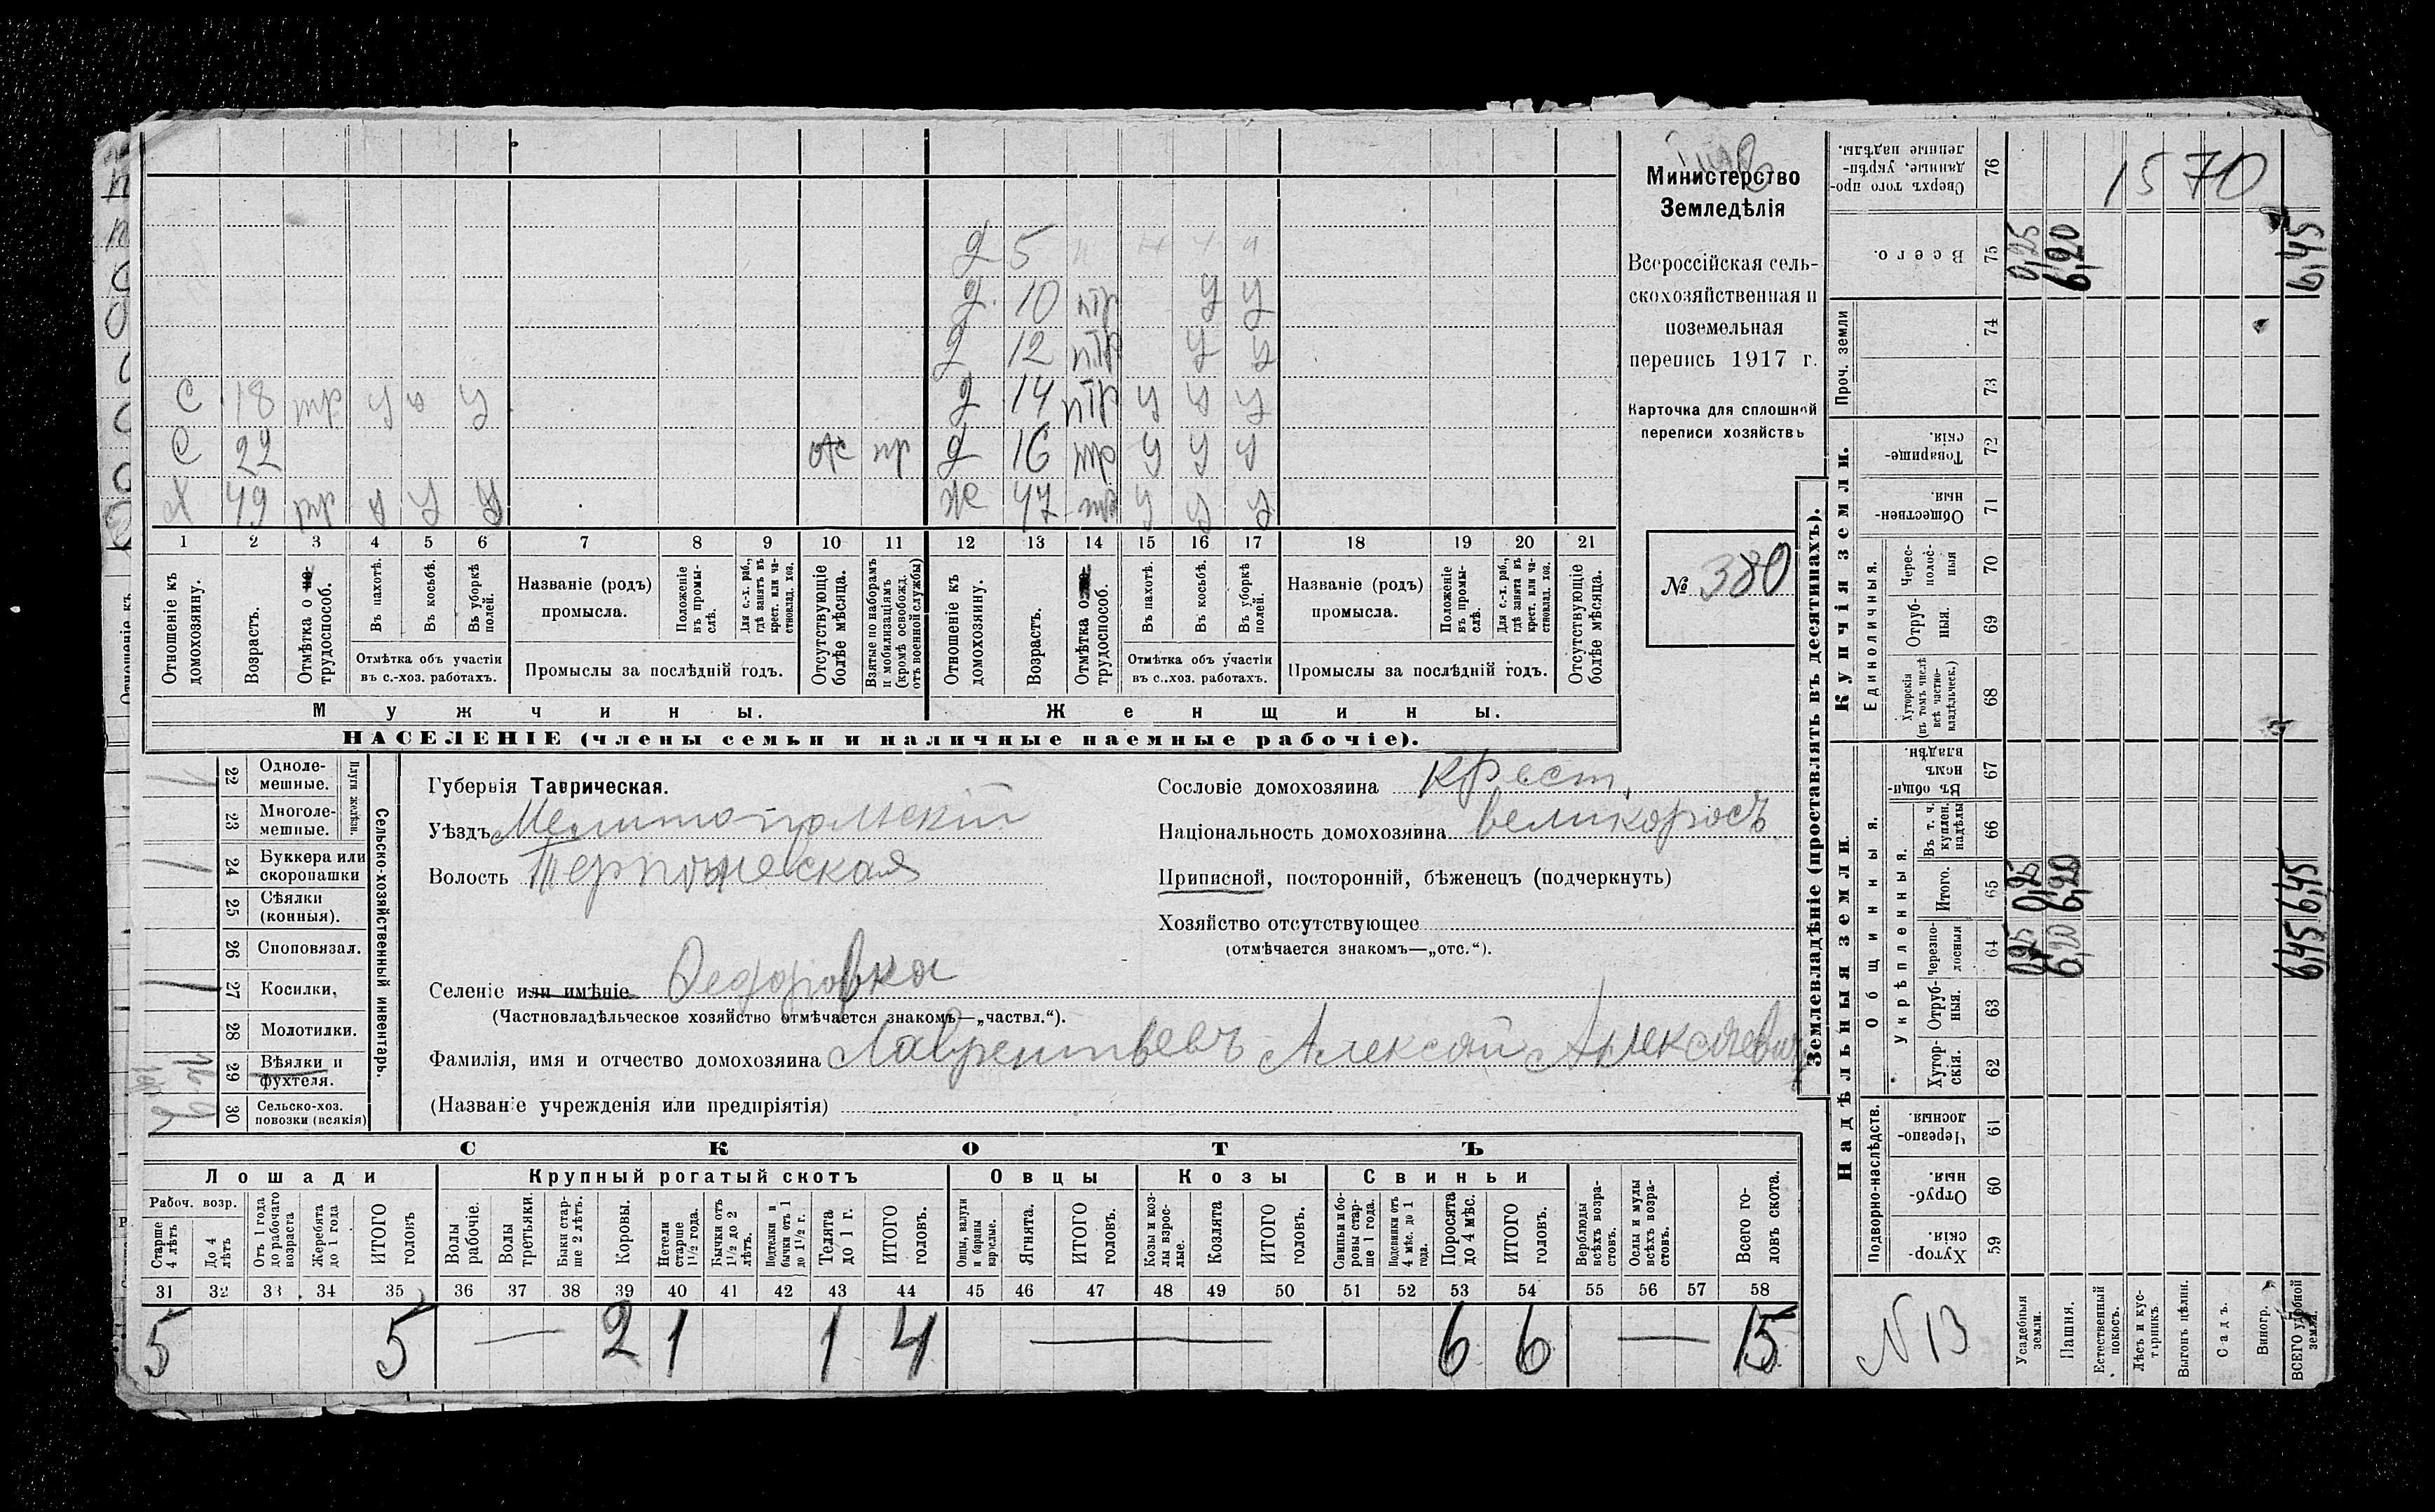 Д 5 н н н н
Д. 10 птр у у
Д 12 птр у у
С 18 тр у у у Д 14 птр у у у
С 22 от пр Д 16 тр у у у
Х 49 тр у у у Ж 47 тр у у у
1 2 3 4 5 6 7 8 9 10 11 12 13 14 15 16 17 18 19 20 21
Отношеніе къ домохозяину.
Возрастъ.
Отмѣтка о не-трудоспособ.
Въ пахотѣ.
Въ косьбѣ.
Въ уборкѣ полей.
Отмѣтка объ участіи въ с.-хоз. работахъ.
Названіе (родъ) промысла.
Положеніе въ промы-слѣ.
Для с.-х. раб., гдѣ занятъ въ крест. или ча-стновлад. хоз.
Промыслы за послѣдній годъ.
Отсутствующіе болѣе мѣсяца.
Взятые по наборамъ и мобилизаціямъ (кромѣ освобожд. отъ военной службы)
Отношеніе къ домохозяину.
Возрастъ.
Отмѣтка о трудоспособ.
Въ пахотѣ.
Въ косьбѣ.
Въ уборкѣ полей.
Отмѣтка объ участіи въ с..хоз. работахъ.
Названіе (родъ) промысла.
Положеніе въ промы-слѣ.
Для с.-х. раб., гдѣ занята въ крест. или ча-стновлад. хоз.
Промыслы за послѣдній годъ.
Отсутствующіе болѣе мѣсяца.
Мужчины.
Женщины.
НАСЕЛЕНІЕ (члены семьи и наличные наемные рабочіе).
Министерство
Земледѣлія
Всероссійская сель-
скохозяйственная и
поземельная
перепись 1917 г.
Карточка для сплошной
переписи хозяйствъ
№ 380
22 Одноле-мешные.
23 Многоле-мешные.
Плуги желѣзн.
24 Буккера или скоропашки
25 Сѣялки (конныя).
26 Споповязал.
27 Косилки.
28 Молотилки.
29 Вѣялки и фухтеля.
30 Сельско-хоз. повозки (всякія)
Сельско-хозяйственный инвентарь.
Губернія Таврическая.
Уѣздъ Мелитопольскій
Волость Терпѣньевская
Селеніе или имѣніе Федоровка
(Частновладѣльческое хозяйство отмѣчается знакомъ—„частвл.“).
Фамилія, имя и отчество домохозяина Лаврентьевъ Алексѣй Алексѣевичъ
(Названіе учрежденія или предпріятія)
Сословіе домохозяина крест.
Національность домохозяина великоросъ
Приписной, посторонній, бѣженецъ (подчеркнуть)
Хозяйство отсутствующее
(отмѣчается знакомъ—„отс.“).
СКОТЪ
Лошади Крупный рогатый скотъ Овцы Козы Свиньи
Рабоч. возр.
Старше 4 лѣтъ
До 4 лѣтъ
Отъ 1 года до рабочаго возраста
Жеребята до 1 года
ИТОГО головъ
Волы рабочіе.
Волы третьяки.
Быки стар-ше 2 лѣтъ.
Коровы.
Нетели старше 1½ года.
Бычки отъ 1½ до 2 лѣтъ.
Подтелки и бычки отъ 1 до 1½ г.
Телята до 1 г.
ИТОГО головъ.
Овцы, валухи и бараны взрослые.
Ягнята.
ИТОГО головъ.
Козы и коз-лы взрос-лые.
Козлята
ИТОГО головъ.
Свиньи и бо-ровы стар-ше 1 года.
Подсвинки отъ 4 мѣс. до 1 года.
Поросята до 4 мѣс.
ИТОГО головъ.
Верблюды всѣхъ возра-стовъ.
Ослы и мулы всѣхъ возра-стовъ.
Всего го-ловъ скота.
31 32 33 34 35 36 37 38 39 40 41 42 43 44 45 46 47 48 49 50 51 52 53 54 55 56 57 58
5 5 — 2 1 1 4 — 6 6 — 15
Землевладѣніе (проставлять въ десятинахъ).
Купчія земли.
Надѣльныя земли.
Сверхъ того про-данные, укрѣп-ленные надѣлы. 76 1570
Всего. 75 0,25 6,20 6,45
Проч. земли 74
73
Товарище-скія. 72
Обществен-ныя. 71
Единоличныя.
Черес-полос-ныя 70
Отруб-ныя. 69
Хуторскія (въ томъ числѣ всѣ частно-владѣльческ.) 68
Общинныя.
Въ общи-номъ владѣн. 67
Укрѣпленныя.
Въ т. ч. куплен. надѣлы 66
Итого. 65 0,25 6,20 6,45
Черезпо-лосныя 64 0,25 6,20 6,45
Отруб-ныя. 63
Хутор-скія. 62
Подворно-наслѣдств.
Черезпо-лосныя 61
Отруб-ныя 60
Хутор-скія. 59
N 13
Усадебныя земли.
Пашня.
Естественный покосъ.
Лѣсъ и кус-тарникъ.
Выгонъ цѣлин.
Садъ.
Виногр.
ВСЕГО удобной земли.